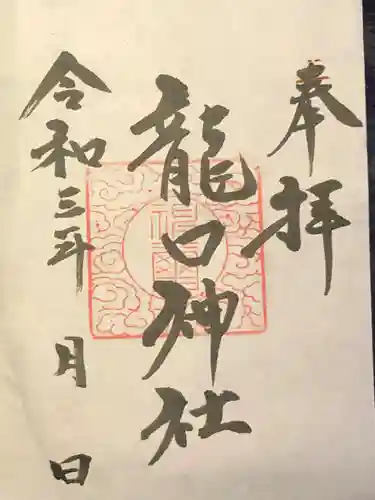 奉拝
龍口神社
令和三年 月 日